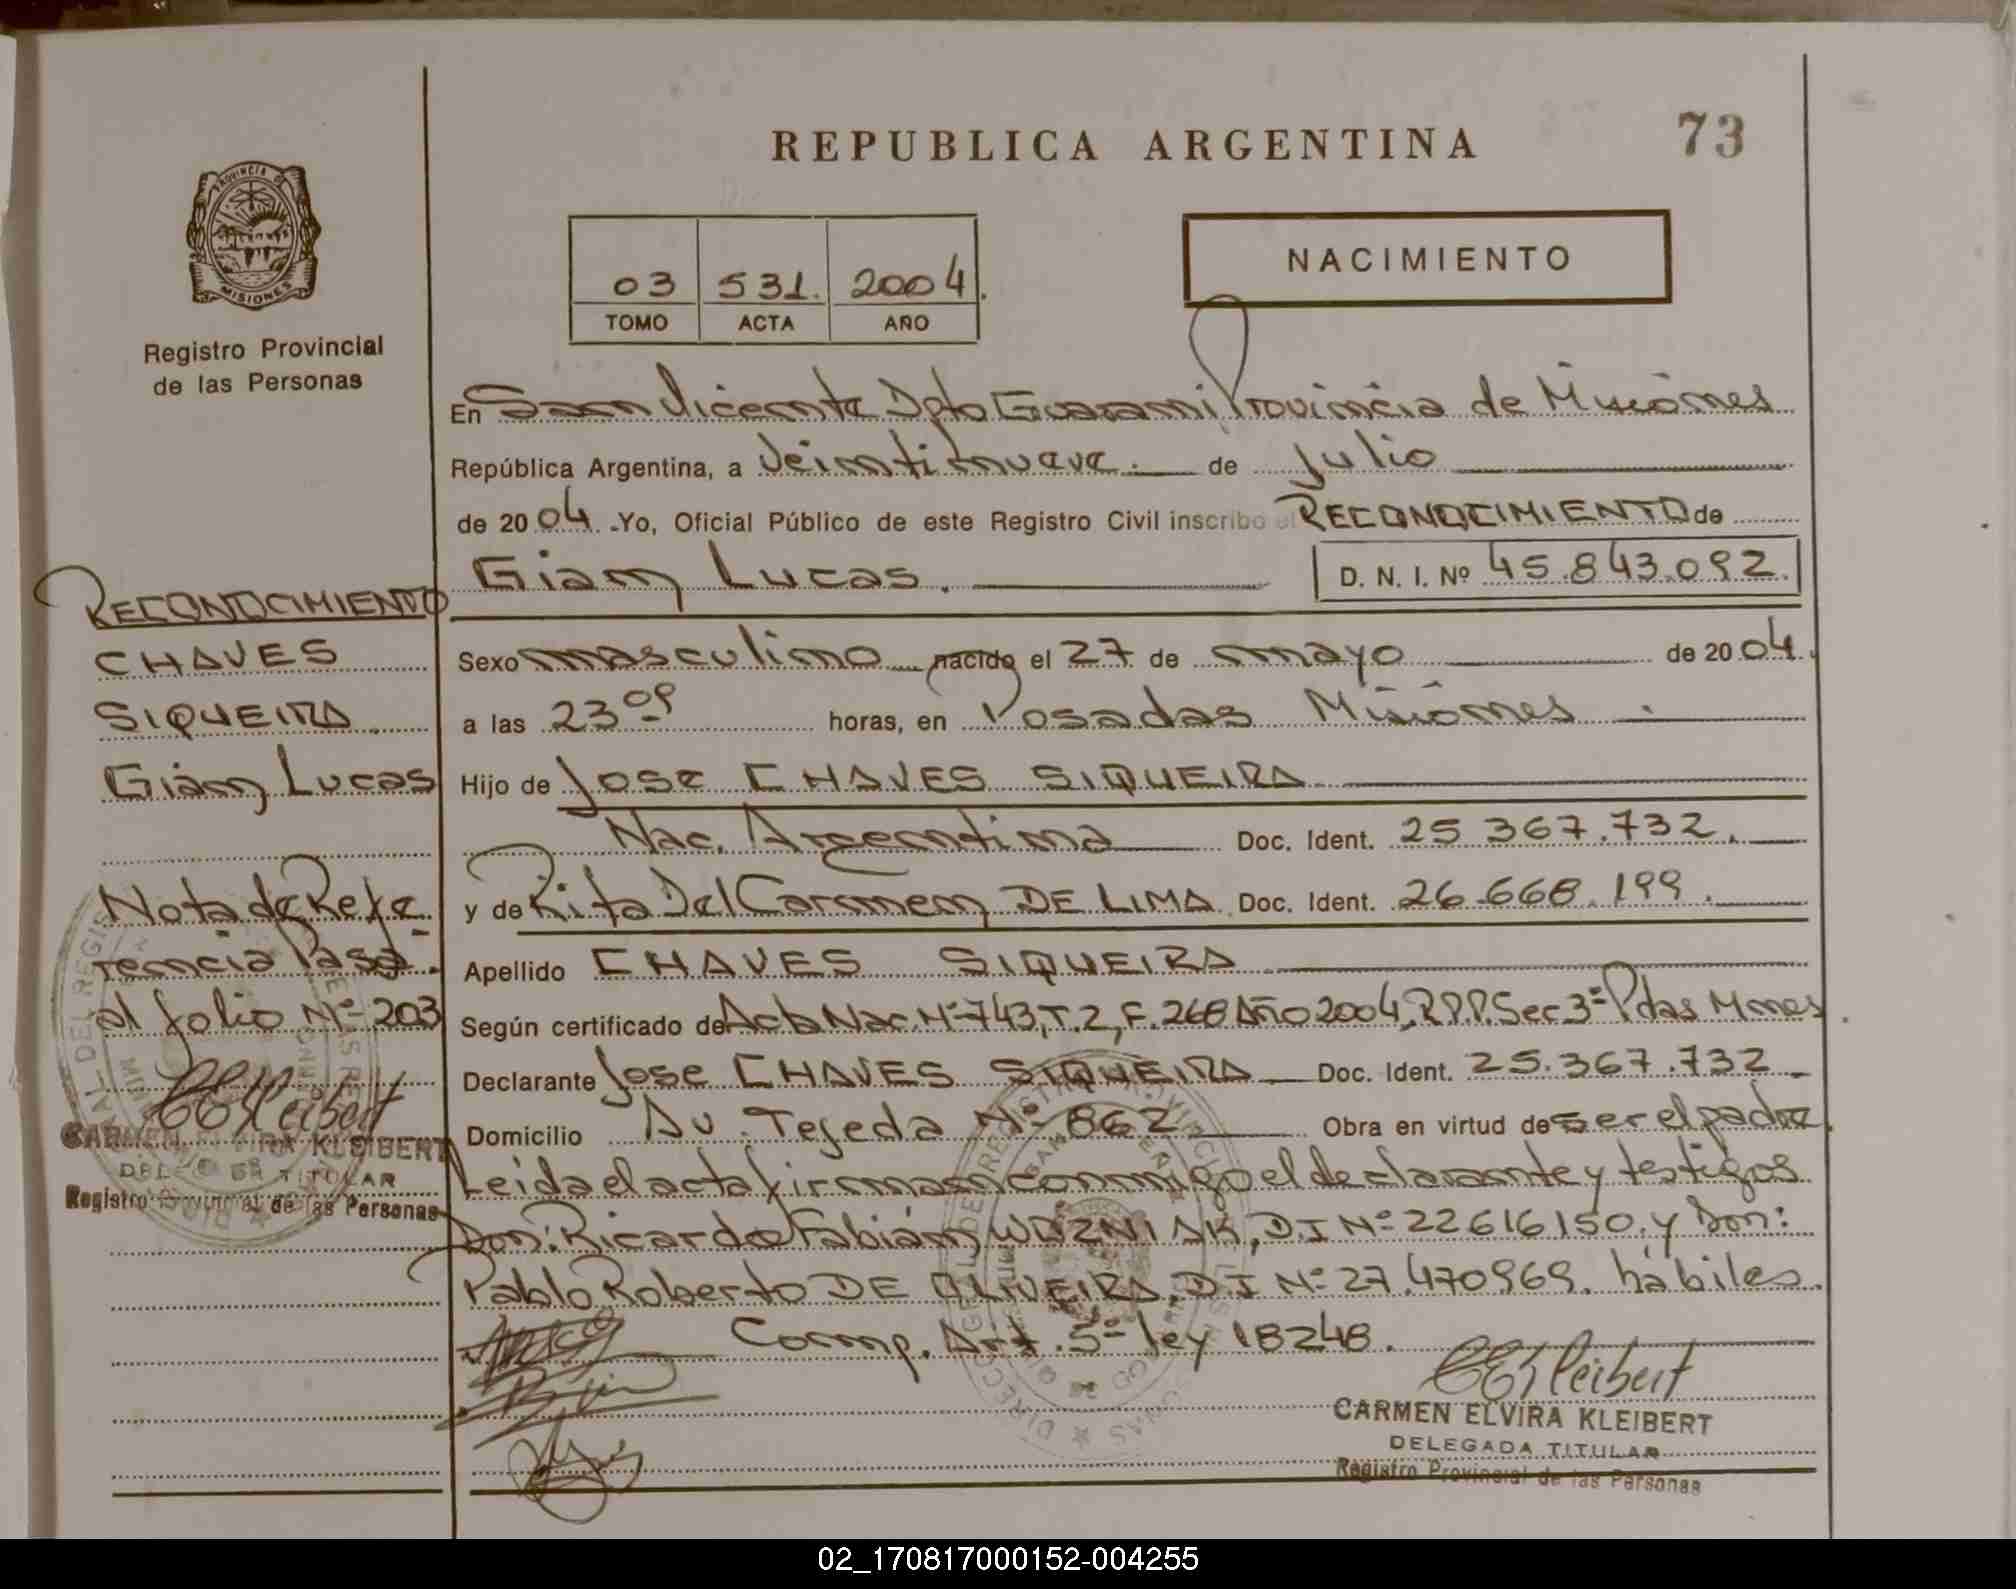 REPUBLICA ARGENTINA
73
PROVINCIA DE
MISIONES
Registro Provincial
de las Personas
03 531. 2004.
TOMO ACTA AÑO
NACIMIENTO
En San Vicente Dpto Guarani Provincia de Misiones
República Argentina, a Veintinueve. de Julio
de 2004. -Yo, Oficial Público de este Registro Civil inscribo el RECONOCIMIENTO de
Gian Lucas. D. N. I. Nº 45.843.092.
Sexo masculino nacido el 27 de mayo de 2004.
a las 23 09 horas, en Posadas Misiones
Hijo de Jose CHAVES SIQUEIRA
Nac. Argentina Doc. Ident. 25.367.732.
y de Rita Del Carmen DE LIMA Doc. Ident. 26.668.199.
Apellido CHAVES SIQUEIRA
Según certificado de Acta Nac. Nº 743, T. 2, F. 268 Año 2004, R.P.P. Sec 3ª Pdas Mnes
Declarante Jose CHAVES SIQUEIRA Doc. Ident. 25.367.732
Domicilio Av. Tejeda Nº 862 Obra en virtud de ser el padre
Leida el acta firman conmigo el declarante y testigos
Don: Ricardo Fabián WOZNIAK, D.I Nº 22616150. y Don:
Pablo Roberto DE OLIVEIRA, D.I Nº 27.470969. hábiles.
Comp. Art. 5º ley 18248.
CEKleibert
CARMEN ELVIRA KLEIBERT
DELEGADA TITULAR
Registro Provincial de las Personas
RECONOCIMIENTO
CHAVES
SIQUEIRA
Gian Lucas
Nota de Refe
rencia Pasa
al folio Nº 203
CEKleibert
CARMEN ELVIRA KLEIBERT
DELEGADA TITULAR
Registro Provincial de las Personas
02_170817000152-004255